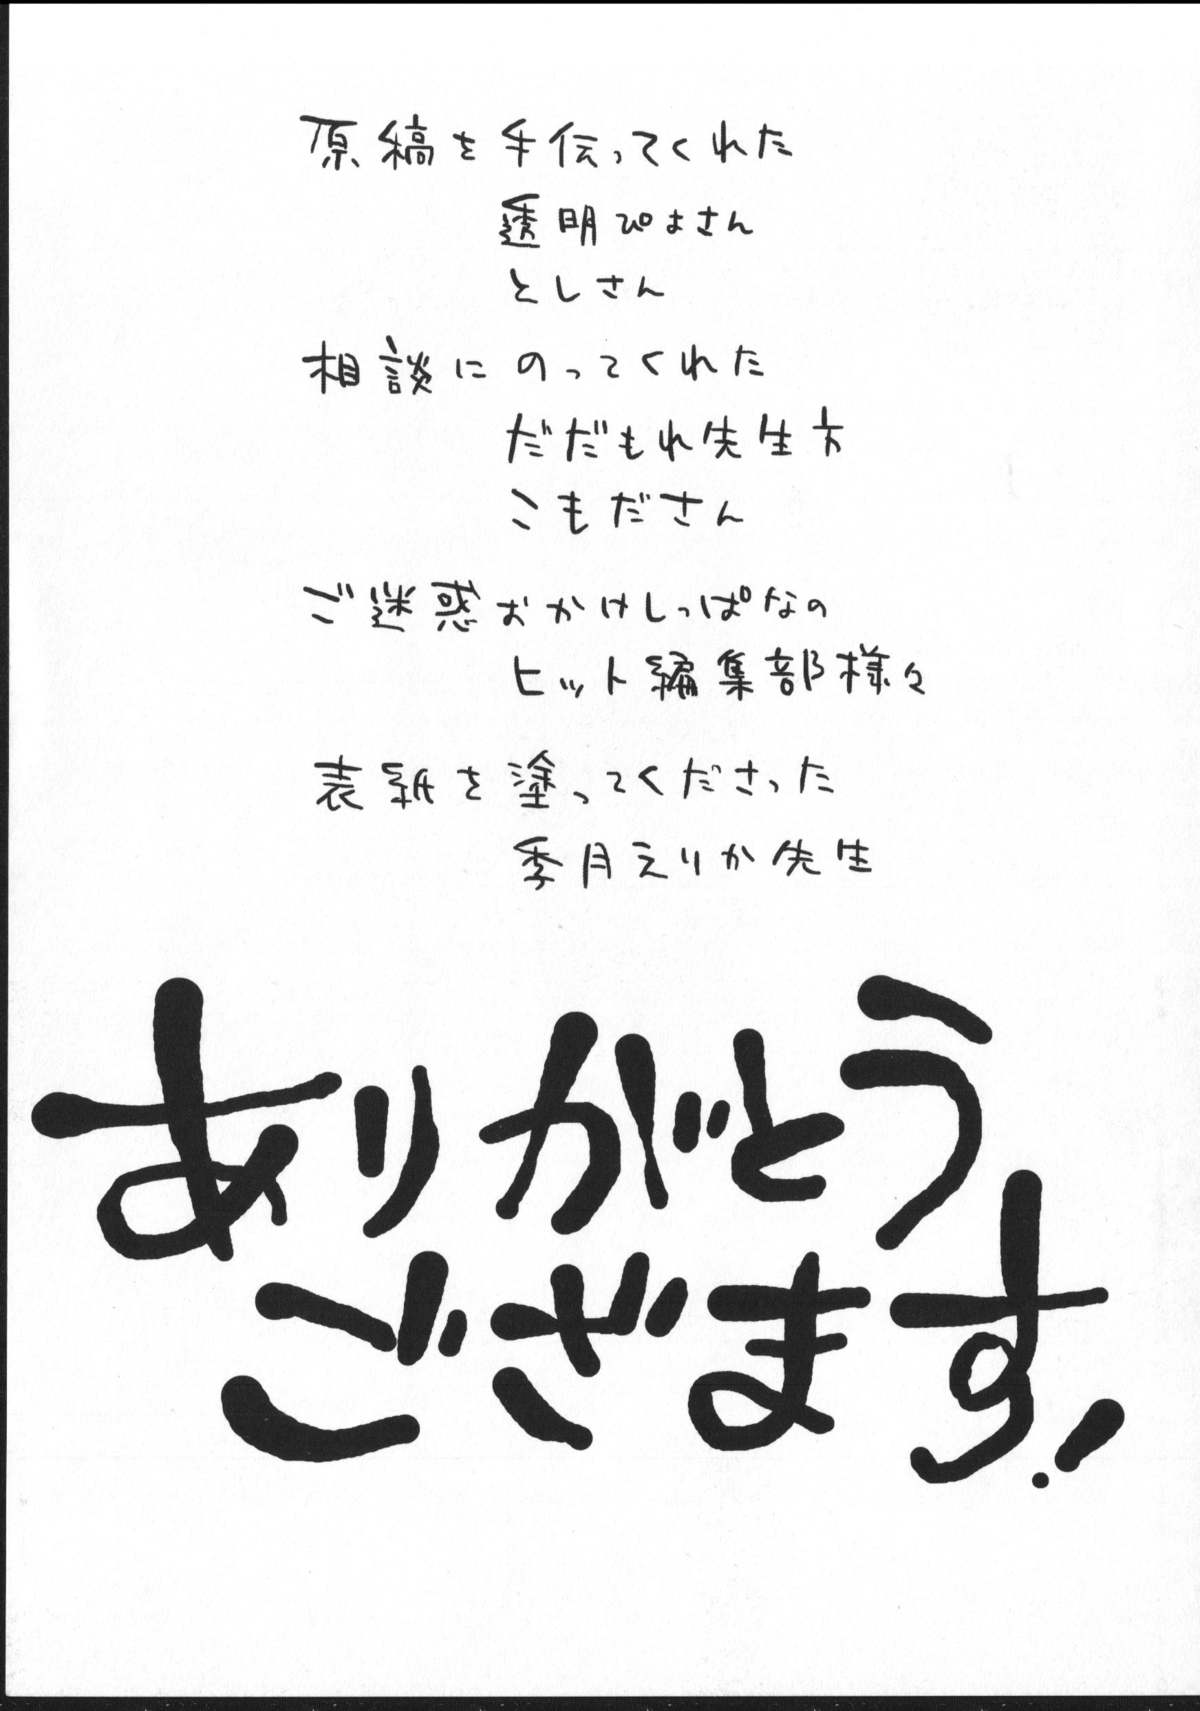 原稿を手伝ってくれた
透明ぴよさん
としさん
相談にのってくれた
だだもれ先生方
こもださん
ご迷惑おかけしっぱなの
ヒット編集部様々
表紙を塗ってくださった
季月えりか先生
ありがとう
ございます!